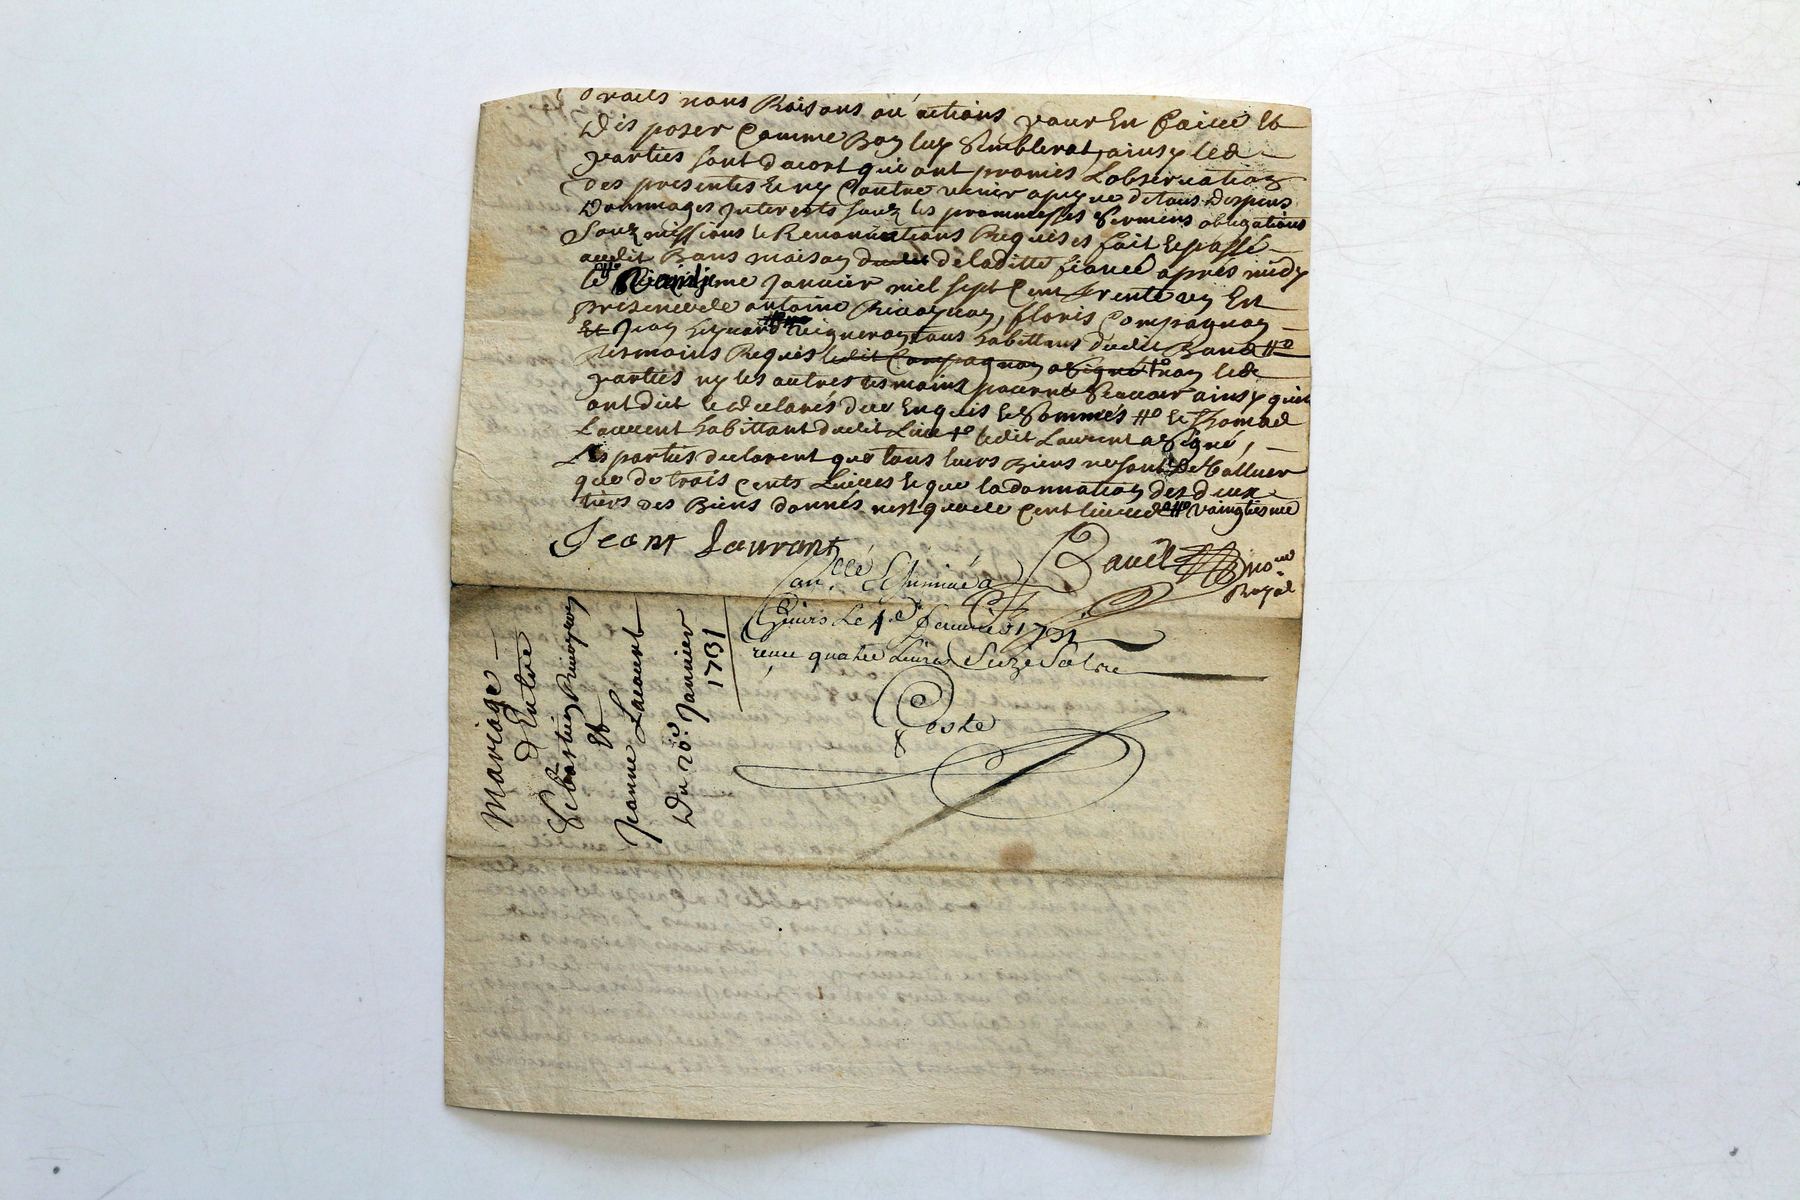 droits noms Raisons ou actions pour En faire Et
Disposer Comme Bon luy Semblerat, ainsy led
parties sont dacort qui ont promies Lobservation
des presentes Et ny Contrevenir a peyne de tous depens
Dommages Interests souz les prommesses Sermens obligations
Souzmissions & Renonciations Requises fait & passé
audit Bans maison de laditte fiancé après midy
le Janvier mil sept Cent trente un En
presence de antoine floris Compagnon
Et Jean vigneron tous habittans dudit Band
tesmoins Requis ledit Compagnon a signé non led
parties ny les autres tesmoins pour ne Scavoir ainsy quils
ont dit & declarés de ce Enquis & Sommés & 
Laurent habittant dudit Lieu ledit Laurent a Signé,
Les parties declarent que tous leurs Biens ne sont de Valluer
que de trois cents Livres & que la donnation des deux
tiers des Biens donnés nest que de Cent livres vaingtiesme
Jeant Laurant
no.re
Royal
Con.llé a
Le 1731
receu quatre Livres Seize Sols
Coste
Mariage
d'Entre
Sebastien
Et
Jeanne Lacourt
Du 20.e Janvier
1731